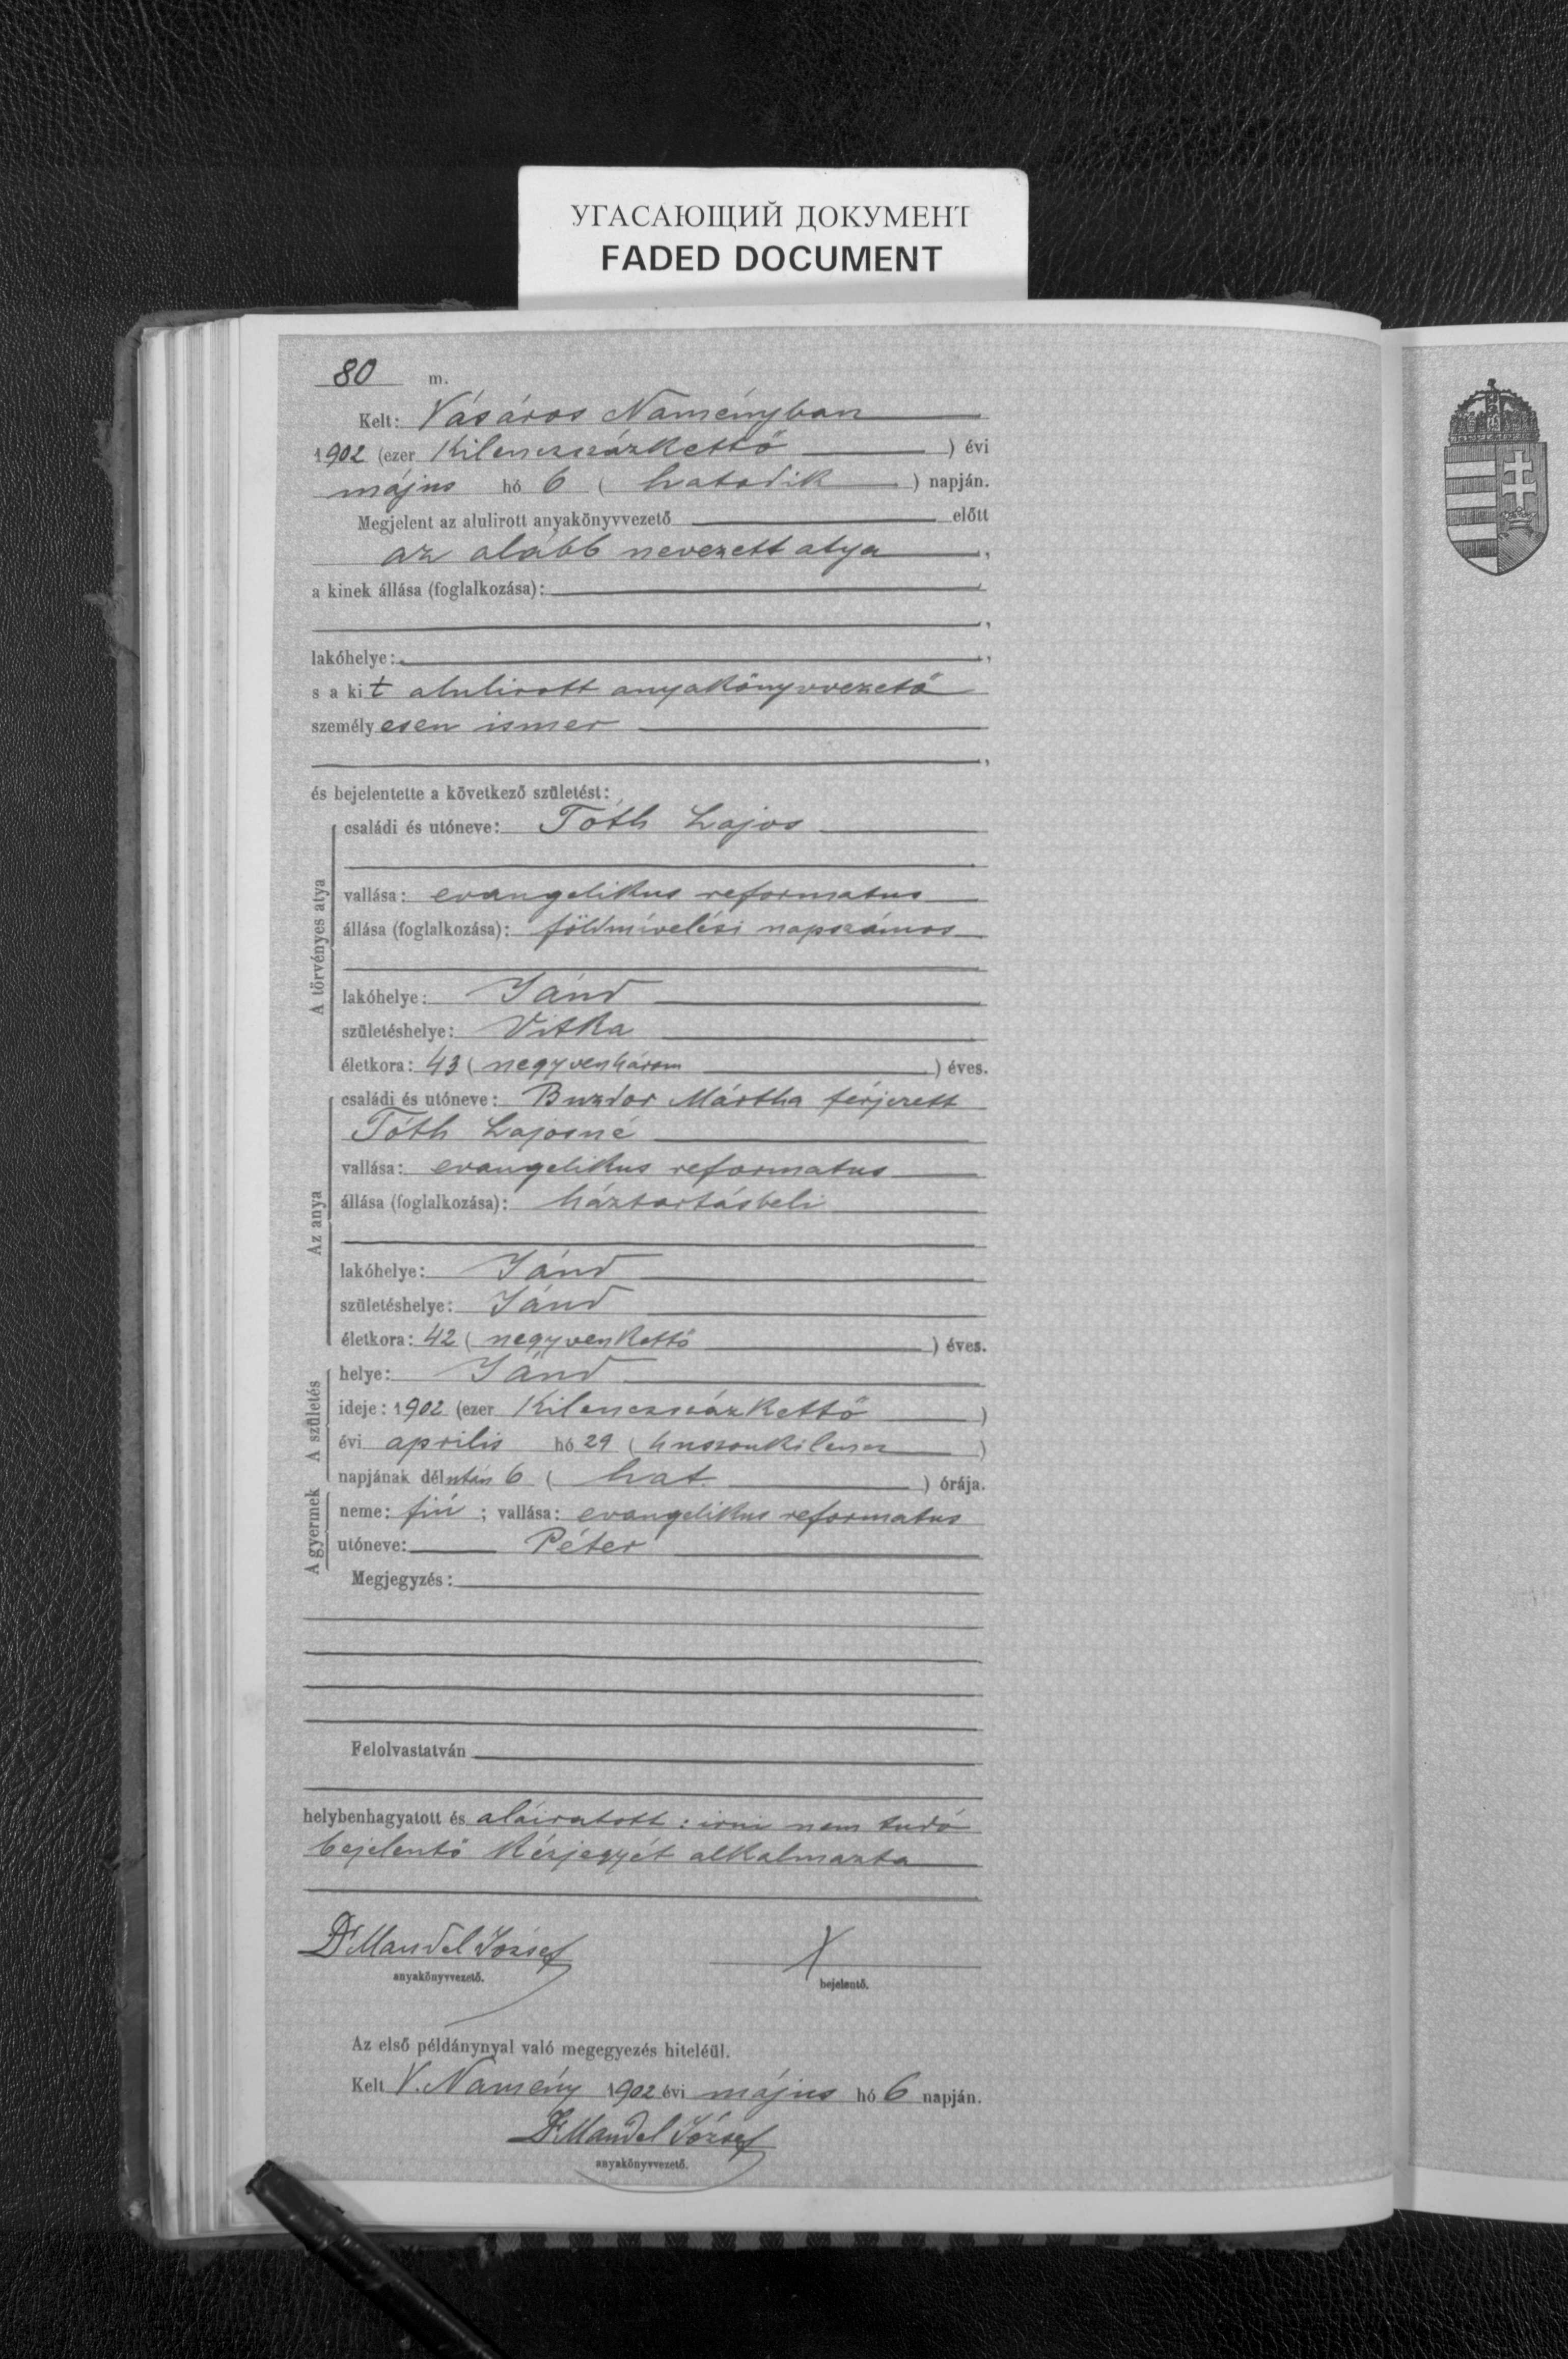 УГАСАЮЩИЙ ДОКУМЕНТ
FADED DOCUMENT
80 m.
Kelt: Vásáros Naményban
1902 (ezer Kilenczszázkettő) évi
május hó 6 (hatodik) napján.
Megjelent az alulirott anyakönyvvezető előtt
az alább nevezett atya,
a kinek állása (foglalkozása):
,
lakóhelye: ,
s a kit alulirott anyakönyvvezető
személyesen ismer
,
és bejelentette a következő születést:
A törvényes atya
családi és utóneve: Tóth Lajos
vallása: evangelikus reformatus
állása (foglalkozása): földmívelési napszámos
lakóhelye: Jánd
születéshelye: Vitka
életkora: 43 (negyvenhárom) éves.
Az anya
családi és utóneve: Buzdor Mártha férjezett
Tóth Lajosné
vallása: evangelikus reformatus
állása (foglalkozása): háztartásbeli
lakóhelye: Jánd
születéshelye: Jánd
életkora: 42 (negyvenkettő) éves.
A születés
helye: Jánd
ideje: 1902 (ezer Kilenczszázkettő)
évi április hó 29 (huszonkilencz)
napjának délután 6 (hat) órája.
A gyermek
neme: fiú; vallása: evangelikus reformatus
utóneve: Péter
Megjegyzés:
Felolvastatván
helybenhagyatott és aláiratott: irni nem tudó
bejelentő kézjegyét alkalmazta
Dr Mandel József X
anyakönyvvezető. bejelentő.
Az első példánynyal való megegyezés hiteléül.
Kelt V. Namény 1902 évi május hó 6 napján.
Dr Mandel József
anyakönyvvezető.